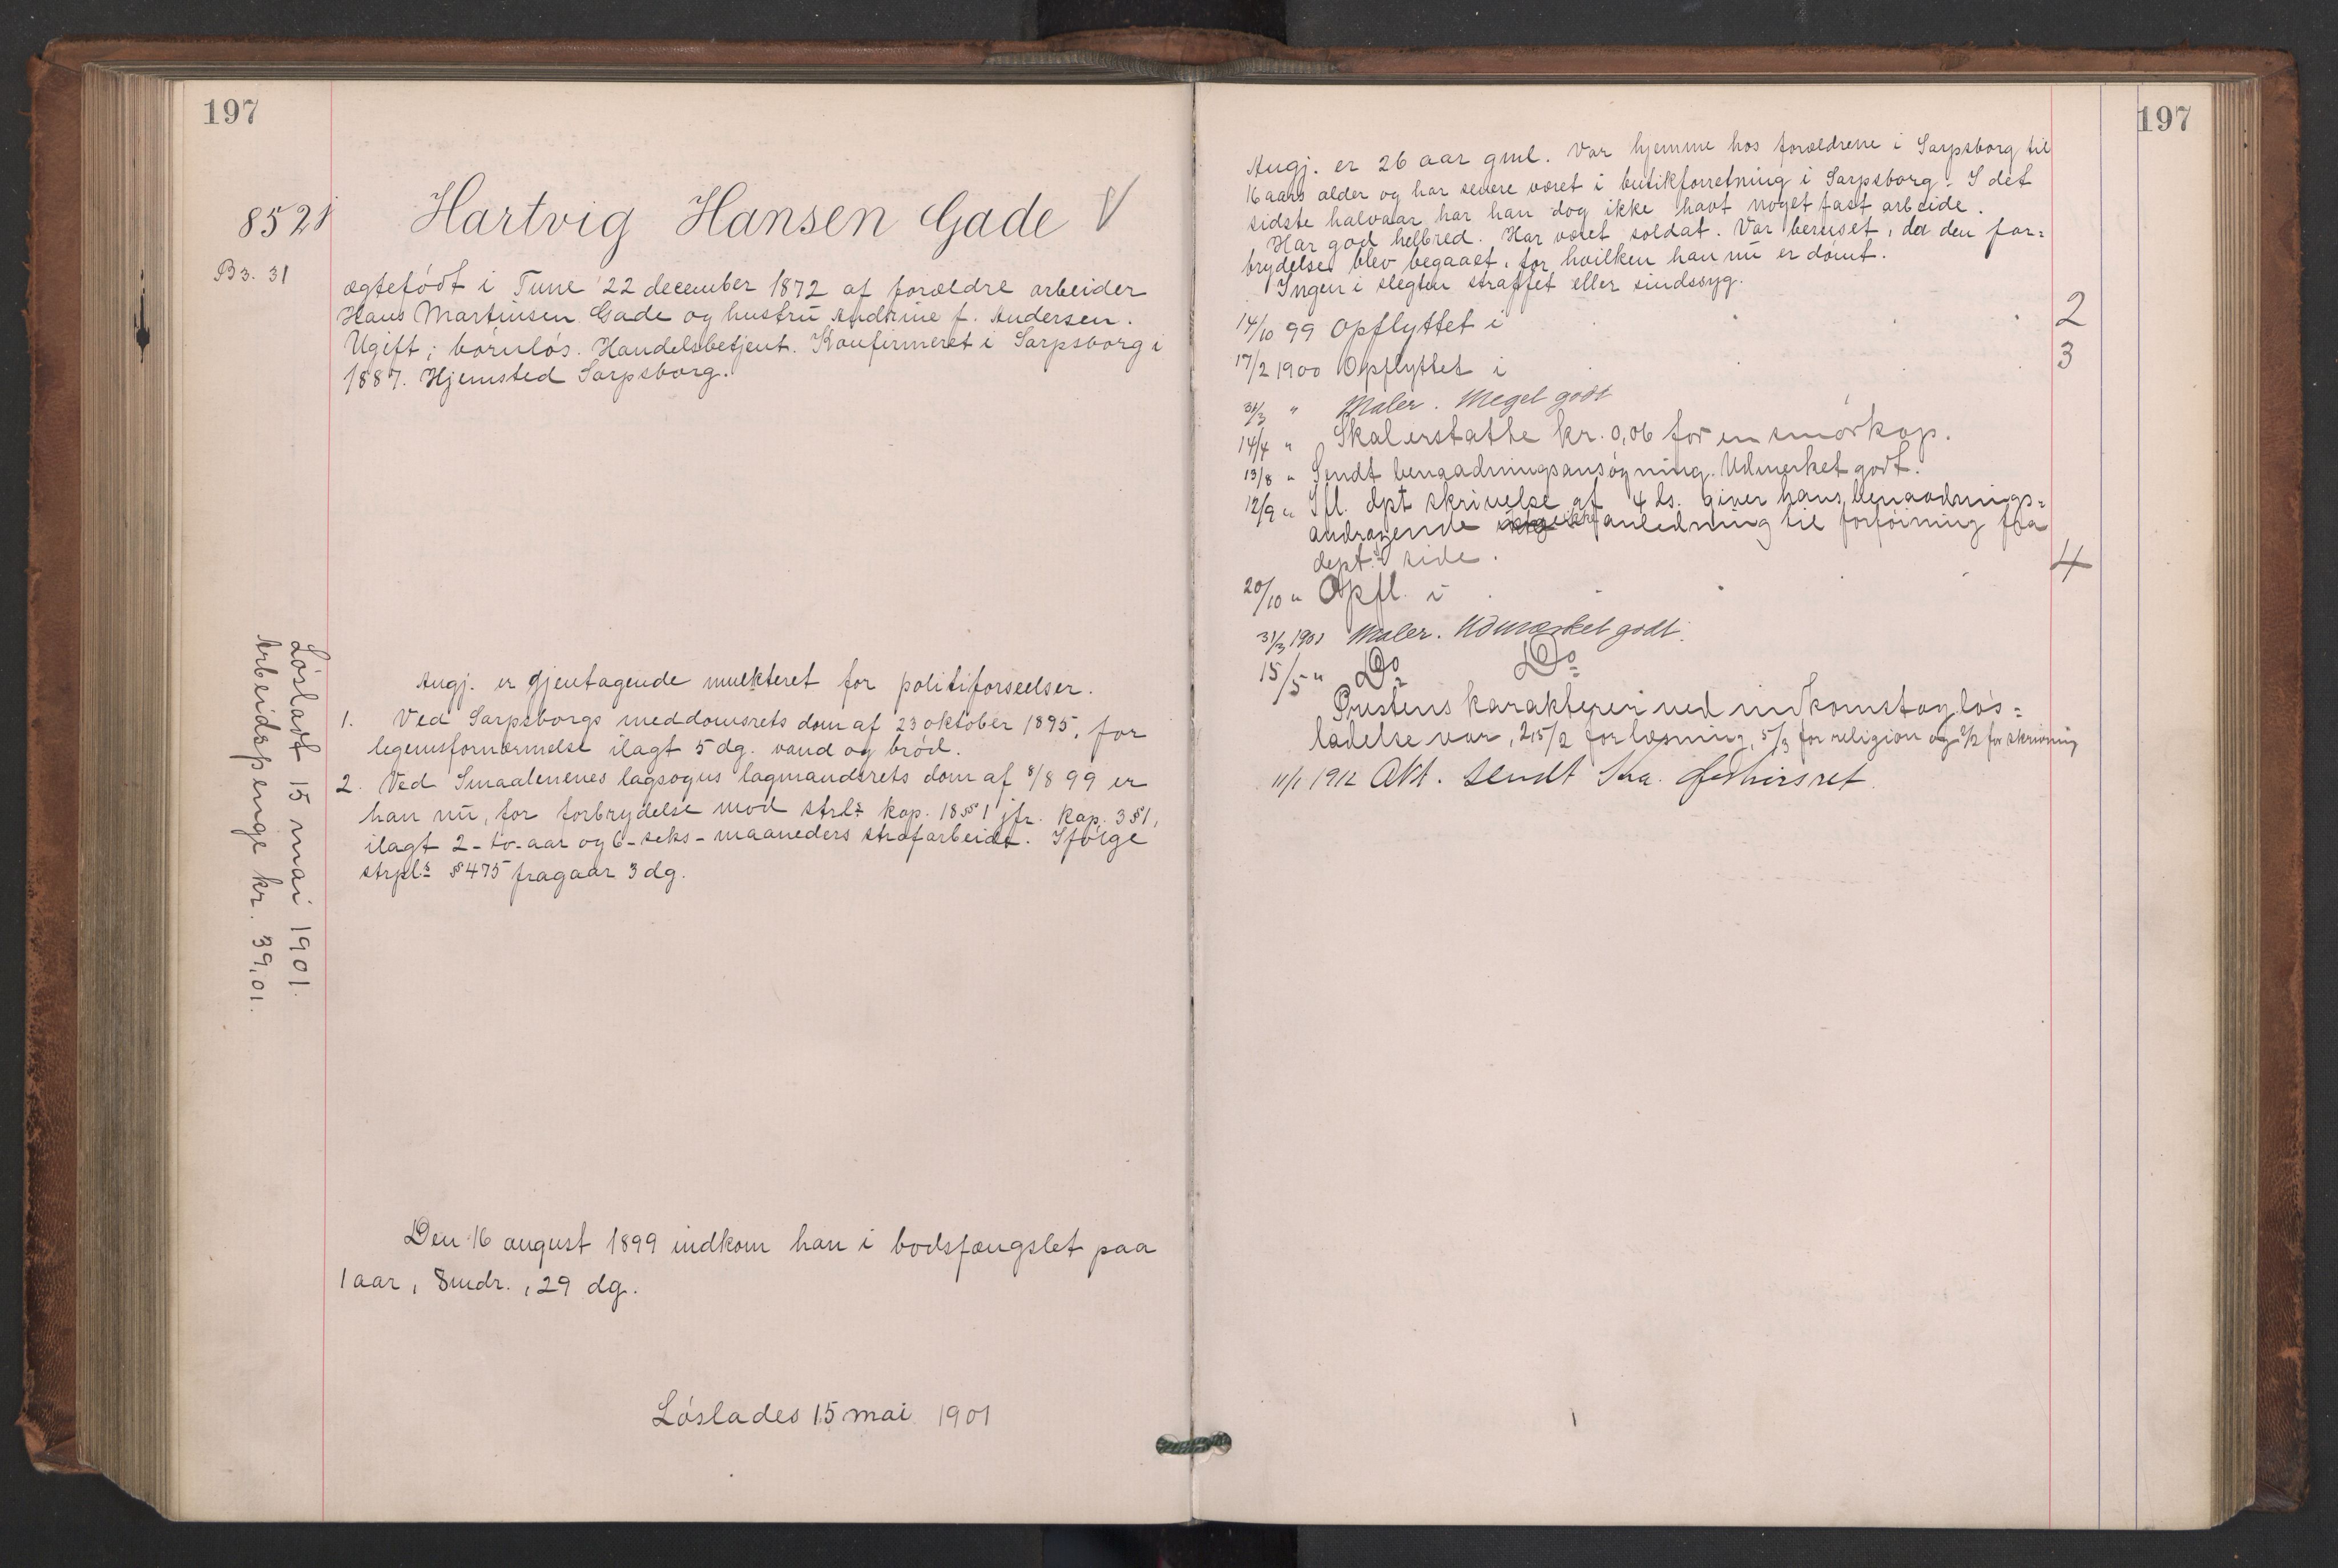 197
8521
Hartvig Hansen Gade V
B3. 31
ægtefødt i Tune 22 december 1872 af forældre arbeider
Hans Martinsen Gade og hustru Andrine f. Andersen.
Ugift; børnløs. Handelsbetjent. Konfirmeret i Sarpsborg i
1887. Hjemsted Sarpsborg.
Løsladt 15 mai 1901.
Arbeidspenge kr. 39,01.
Angj. er gjentagende mulkteret for politiforseelser.
1. Ved Sarpsborgs meddomsrets dom af 23 oktober 1895, for
legemsfornærmelse ilagt 5 dg. vand og brød.
2. Ved Smaalenenes lagsogns lagmandsrets dom af 8/8 99 er
han nu, for forbrydelse mod strls kap. 18 § 1 jfr. kap. 3 § 1,
ilagt 2-to-aar og 6-seks-maaneders strafarbeide. Ifølge
strpls § 475 fragaar 3 dg.
Den 16 august 1899 indkom han i bodsfængslet paa
1 aar, 8 mdr., 29 dg.
Løslades 15 mai 1901
197
Angj. er 26 aar gml. Var hjemme hos forældrene i Sarpsborg til
16 aars alder og har senere været i butikforretning i Sarpsborg. I det
sidste halvaar har han dog ikke havt noget fast arbeide.
Har god helbred. Har været soldat. Var beruset, da den for=
brydelse blev begaaet, for hvilken han nu er dømt.
Ingen i slegten straffet eller sindssyg.
14/10 99 Opflyttet i 2
17/2 1900 Opflyttet i 3
31/3 " Maler. Meget godt
14/4 " Skal erstatte kr. 0,06 for en smørkop.
13/8 " Sendt benaadningsansøgning. Udmerket godt.
12/9 " Ifl. dpt skrivelse af 4 ds. giver hans benaadnings=
andragende ikke anledning til forføining fra
dept.s side.
20/10 " Opfl. i 4
31/3 1901 Maler. Udmærket godt.
15/5 " Do Do
Prestens karakterer ved indkomst og løs=
ladelse var, 2,15/2 for læsning, 5/3 for religion og 2/2 for skrivning
11/1 1912 Akt. sendt Kra. forhørsret.